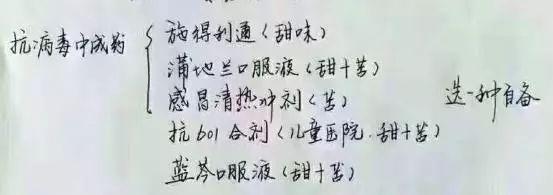 抗病毒中成药
施得利通(甜味)
蒲地兰口服液(甜+苦)
感冒清热冲剂(苦)
抗601合剂(儿童医院.甜+苦)
蓝芩口服液(甜+苦)
选一种自备